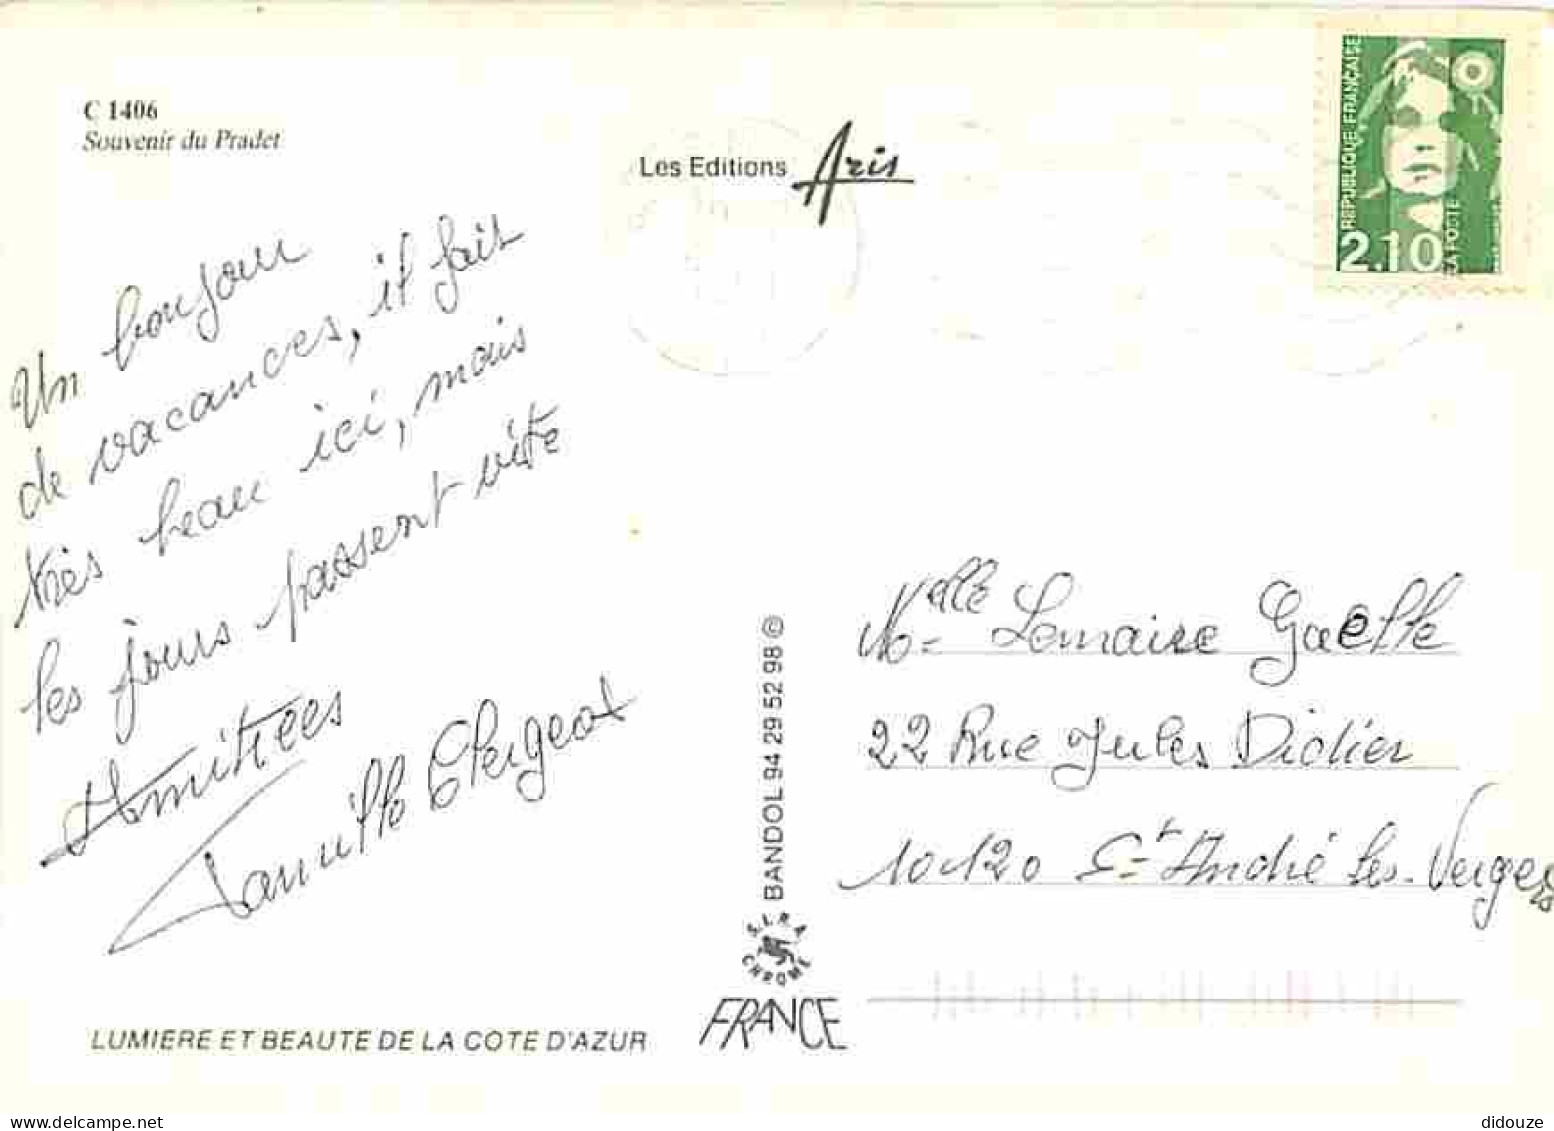 C 1406
Souvenir du Pradet
Les Editions Aris
REPUBLIQUE FRANÇAISE
2.10
LA POSTE
Un bonjour
de vacances, il fait
très beau ici, mais
les jours passent vite
Amitiées
Famille Clergeot
BANDOL 94 29 52 98 ©
S.I.R.A
CHROME
FRANCE
LUMIERE ET BEAUTE DE LA COTE D'AZUR
Melle Lemaire Gaelle
22 Rue Jules Didier
10120 St André les Vergers
delcampe.net
didouze